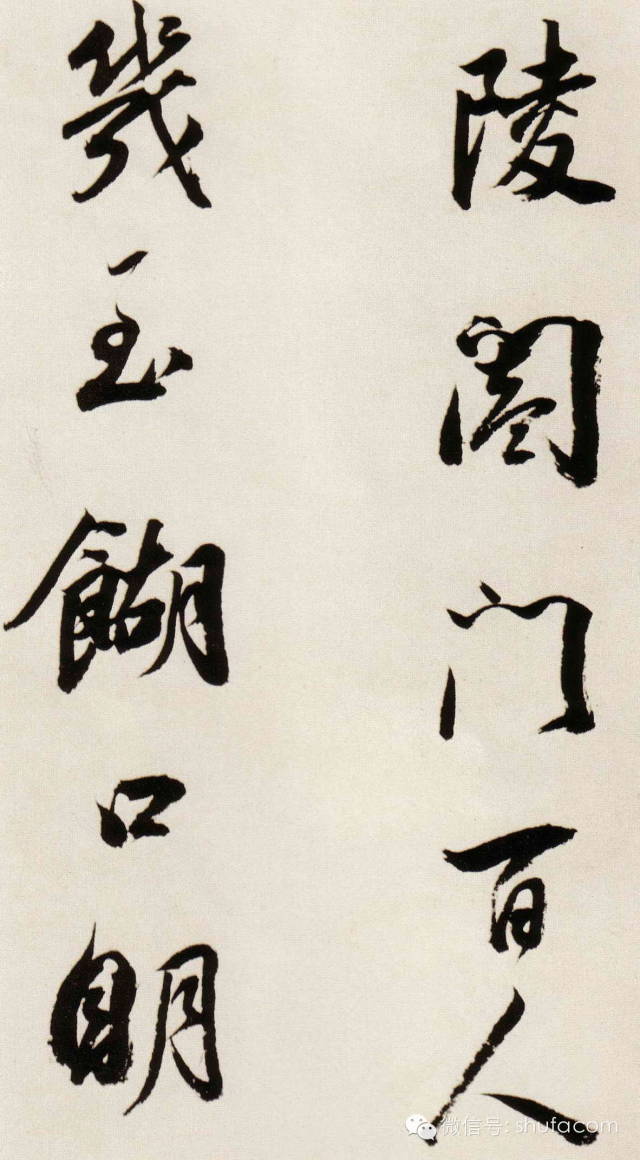 陵闔門百人
幾至餬口明
微信号: shufacom